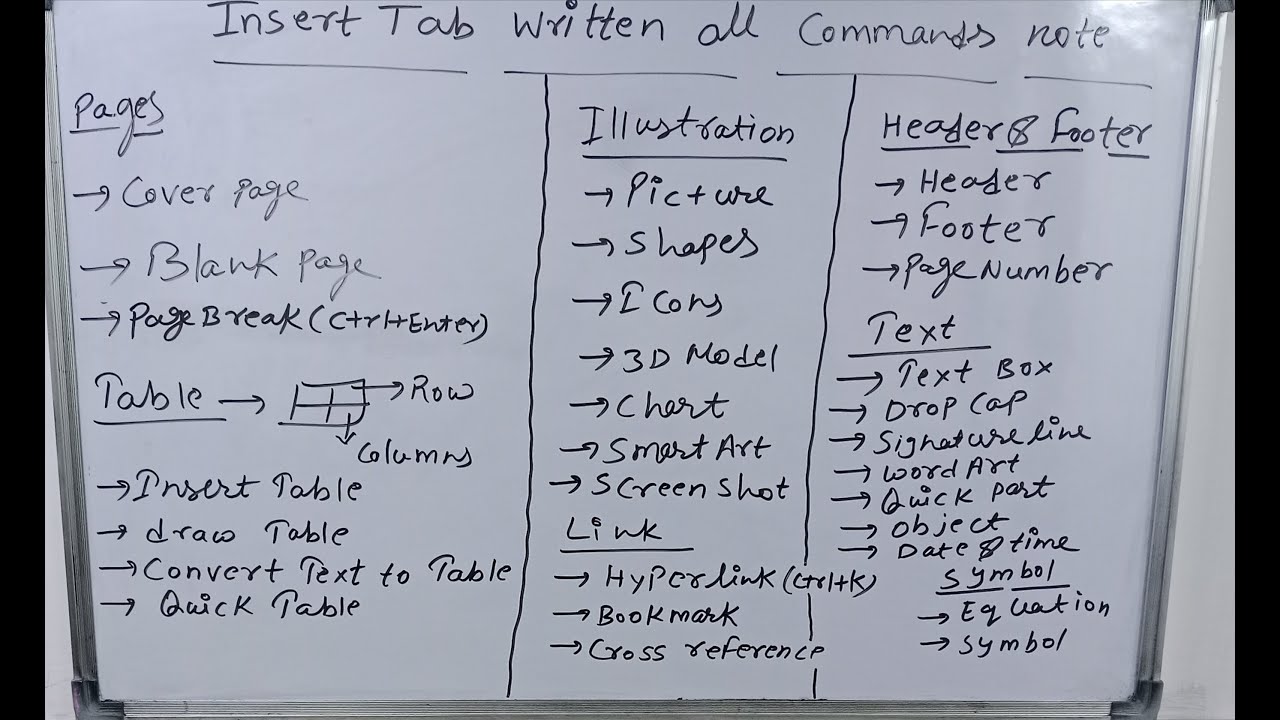 Insert Tab Written all Commands note
Pages
→ Cover Page
→ Blank Page
→ Page Break (Ctrl+Enter)
Table → → Row
Columns
→ Insert Table
→ draw Table
→ Convert Text to Table
→ Quick Table
Illustration
→ Picture
→ Shapes
→ Icons
→ 3D Model
→ Chart
→ Smart Art
→ Screen Shot
Link
→ Hyperlink (Ctrl+K)
→ Bookmark
→ Cross reference
Header & Footer
→ Header
→ Footer
→ Page Number
Text
→ Text Box
→ Drop Cap
→ Signature line
→ Word Art
→ Quick Part
→ Object
→ Date & time
Symbol
→ Equation
→ Symbol